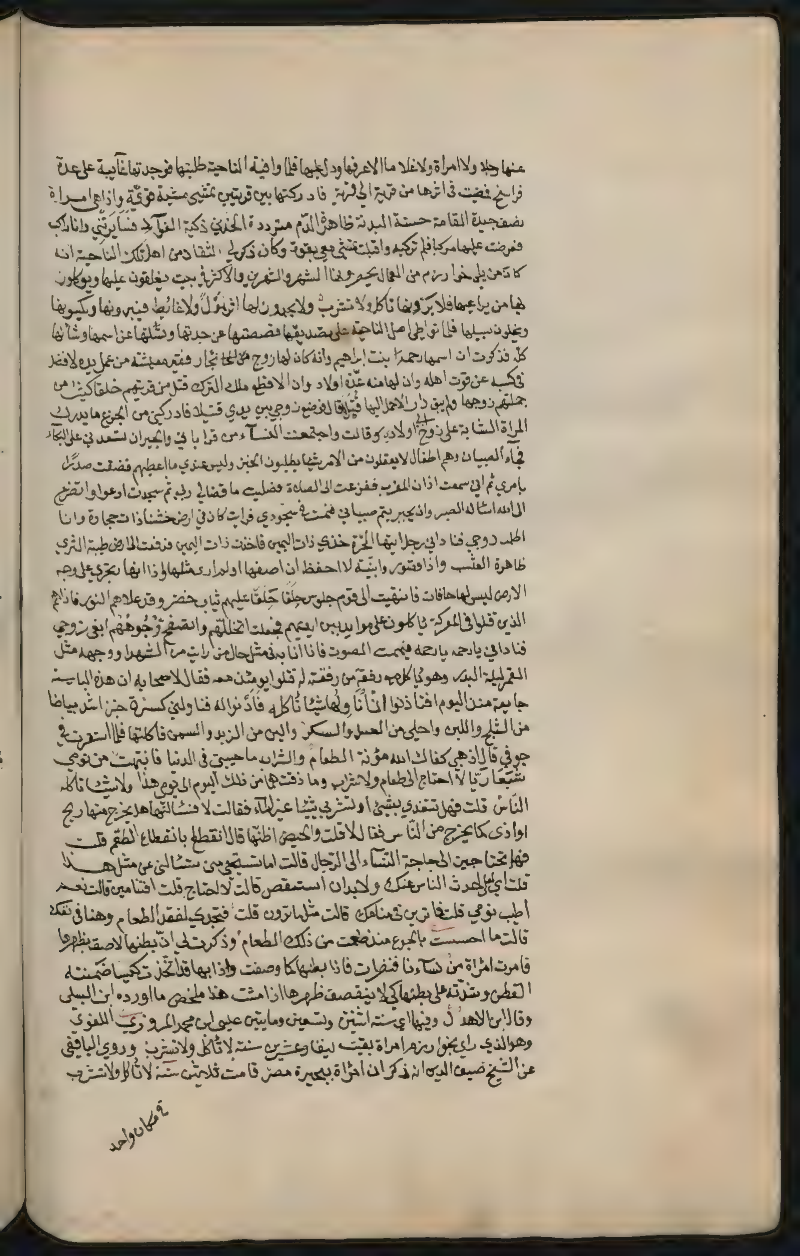 عنها رجلا ولا امراة ولا غلاما الا عرفها ودل عليها فلما وافيت الناحية طلبتها فوجدتها غايبة على عدة
فراسخ فمضيت في اثرها من قرية الى قرية فادركتها بين قريتين تمشي مشية قوية واذا هي امراة
نصف جيدة القامة حسنة البدنة ظاهرة الدم متوردة الخدين ذكية الفواد فسايرتني وانا راكب
فعرضت عليها مركبا فلم تركبه واقبلت تمشي معي بقوة وكان ذكر لي الثقات من اهل تلك الناحية انه
كان من يلي خوارزم من العمال يحصرونها الشهر والشهرين والاكثر في بيت يغلقون عليها ويوكلون
بها من يراعيها فلا يرونها تاكل ولا تشرب ولا يجدون لها اثر بول ولا غايط فيبرونها ويكسونها
ويخلون سبيلها فلما تواطى اهل الناحية على تصديقها قصصتها عن حديثها وسالتها عن اسمها وشانها
كله فذكرت ان اسمها رحمة بنت ابراهيم وانه كان لها زوج نجار فقير معيشته من عمل يده لا فضل
في كسبه عن قوت اهله وان لها منه عدة اولاد وان الاقطع ملك الترك قتل من قريتهم خلقا كثيرا من
جملتهم زوجها ولم يبق دار الا حمل اليها قتيل قالت فوضع زوجي بين يدي قتيلا فادركني من الجزع ما يدرك
المراة الشابة على زوج ابي اولاد قالت واجتمعت النساء من قراباتي والجيران تسعدني على البكاء
فجاء الصبيان وهم اطفال لا يعقلون من الامر شيا يطلبون الخبز وليس عندي ما اعطيهم فضقت صدرا
بامري ثم اني سمعت اذان المغرب ففزعت الى الصلاة فصليت ما قضى لي ربي ثم سجدت ادعوا واتضرع
الى الله اساله الصبر وان يجبر يتم صبياني فنمت في سجودي فرايت كاني في ارض خشنا ذات حجارة وانا
اطلب زوجي فناداني رجل ايتها الحرة خذي ذات اليمين فاخذت ذات اليمين فرفعت لي ارض طيبة الثرى
ظاهرة العشب واذا قصور وابنية لا احفظ ان اصفها ولم ار مثلها واذا انهار تجري على وجه
الارض ليس لها حافات فانتهيت الى قوم جلوس حلقا حلقا عليهم ثياب خضر وقد علاهم النور فاذا هم
الذين قتلوا في المعركة ياكلون على موايد بين ايديهم فجعلت اتخللهم واتصفح وجوههم ابغي زوجي
فناداني يا رحمة يا رحمة فيممت الصوت فاذا انا به في مثل حال من رايت من الشهدا ووجهه مثل
القمر ليلة البدر وهو ياكل مع رفقة من رفقته قتلوا يومئذ معه فقال لاصحابه ان هذه البايسة
جايعة منذ اليوم افتاذنوا ان اناولها شيئا تاكله فاذنوا له فناولني كسرة خبز اشد بياضا
من الثلج واللبن واحلى من العسل والسكر والين من الزبد والسمن فاكلتها فلما استقرت في
جوفي قال اذهبي كفاك الله مؤنة الطعام والشراب ما حييتي في الدنيا فانتبهت من نومي
شبعا ريا لا احتاج الى طعام ولا شراب وما ذقتهما من ذلك اليوم الى يومي هذا ولا شيئا تاكله
الناس قلت فهل تتغدي بشيئ او تشربي شيئا غير الماء فقالت لا فسالتها هل يخرج منها ريح
او اذى كما يخرج من الناس فقالت لا قلت والحيض اظنها قال انقطع بانقطاع الطعم قلت
فهل تحتاجين الى حاجة النساء الى الرجال قالت اما تستحي مني تسالني عن مثل هذا
قلت اي لعلي احدث الناس عنك ولا بد ان استقصي قالت لا احتاج قلت افتنامين قالت نعم
اطيب نومي قلت فما ترين في منامك قالت مثل ما ترون قلت فتجدي لفقد الطعام وهنا في نفسك
قالت ما احسست بالجوع منذ طعمت من ذلك الطعام وذكرت لي ان بطنها لاصق بظهرها
فامرت امراة من نساءنا فنظرت فاذا بطنها كما وصفت واذا بها قد اتخذت كيسا ضمنته
القطن وشدته على بطنها كي لا ينقصف ظهرها اذا مشت هذا ملخص ما اورده ابن السبكي
وقال ابن الاهدل وفيها اي سنة اثنين وتسعين ومايتين عيسى ابن محمد المروزي اللغوي
وهو الذي راى بخوارزم امراة بقيت نيفا وعشرين سنة لا تاكل ولا تشرب وروى اليافعي
عن الشيخ صفي الدين انه ذكر ان امراة بجيرة مصر قامت ثلاثين سنة لا تاكل ولا تشرب
في مكان واحد